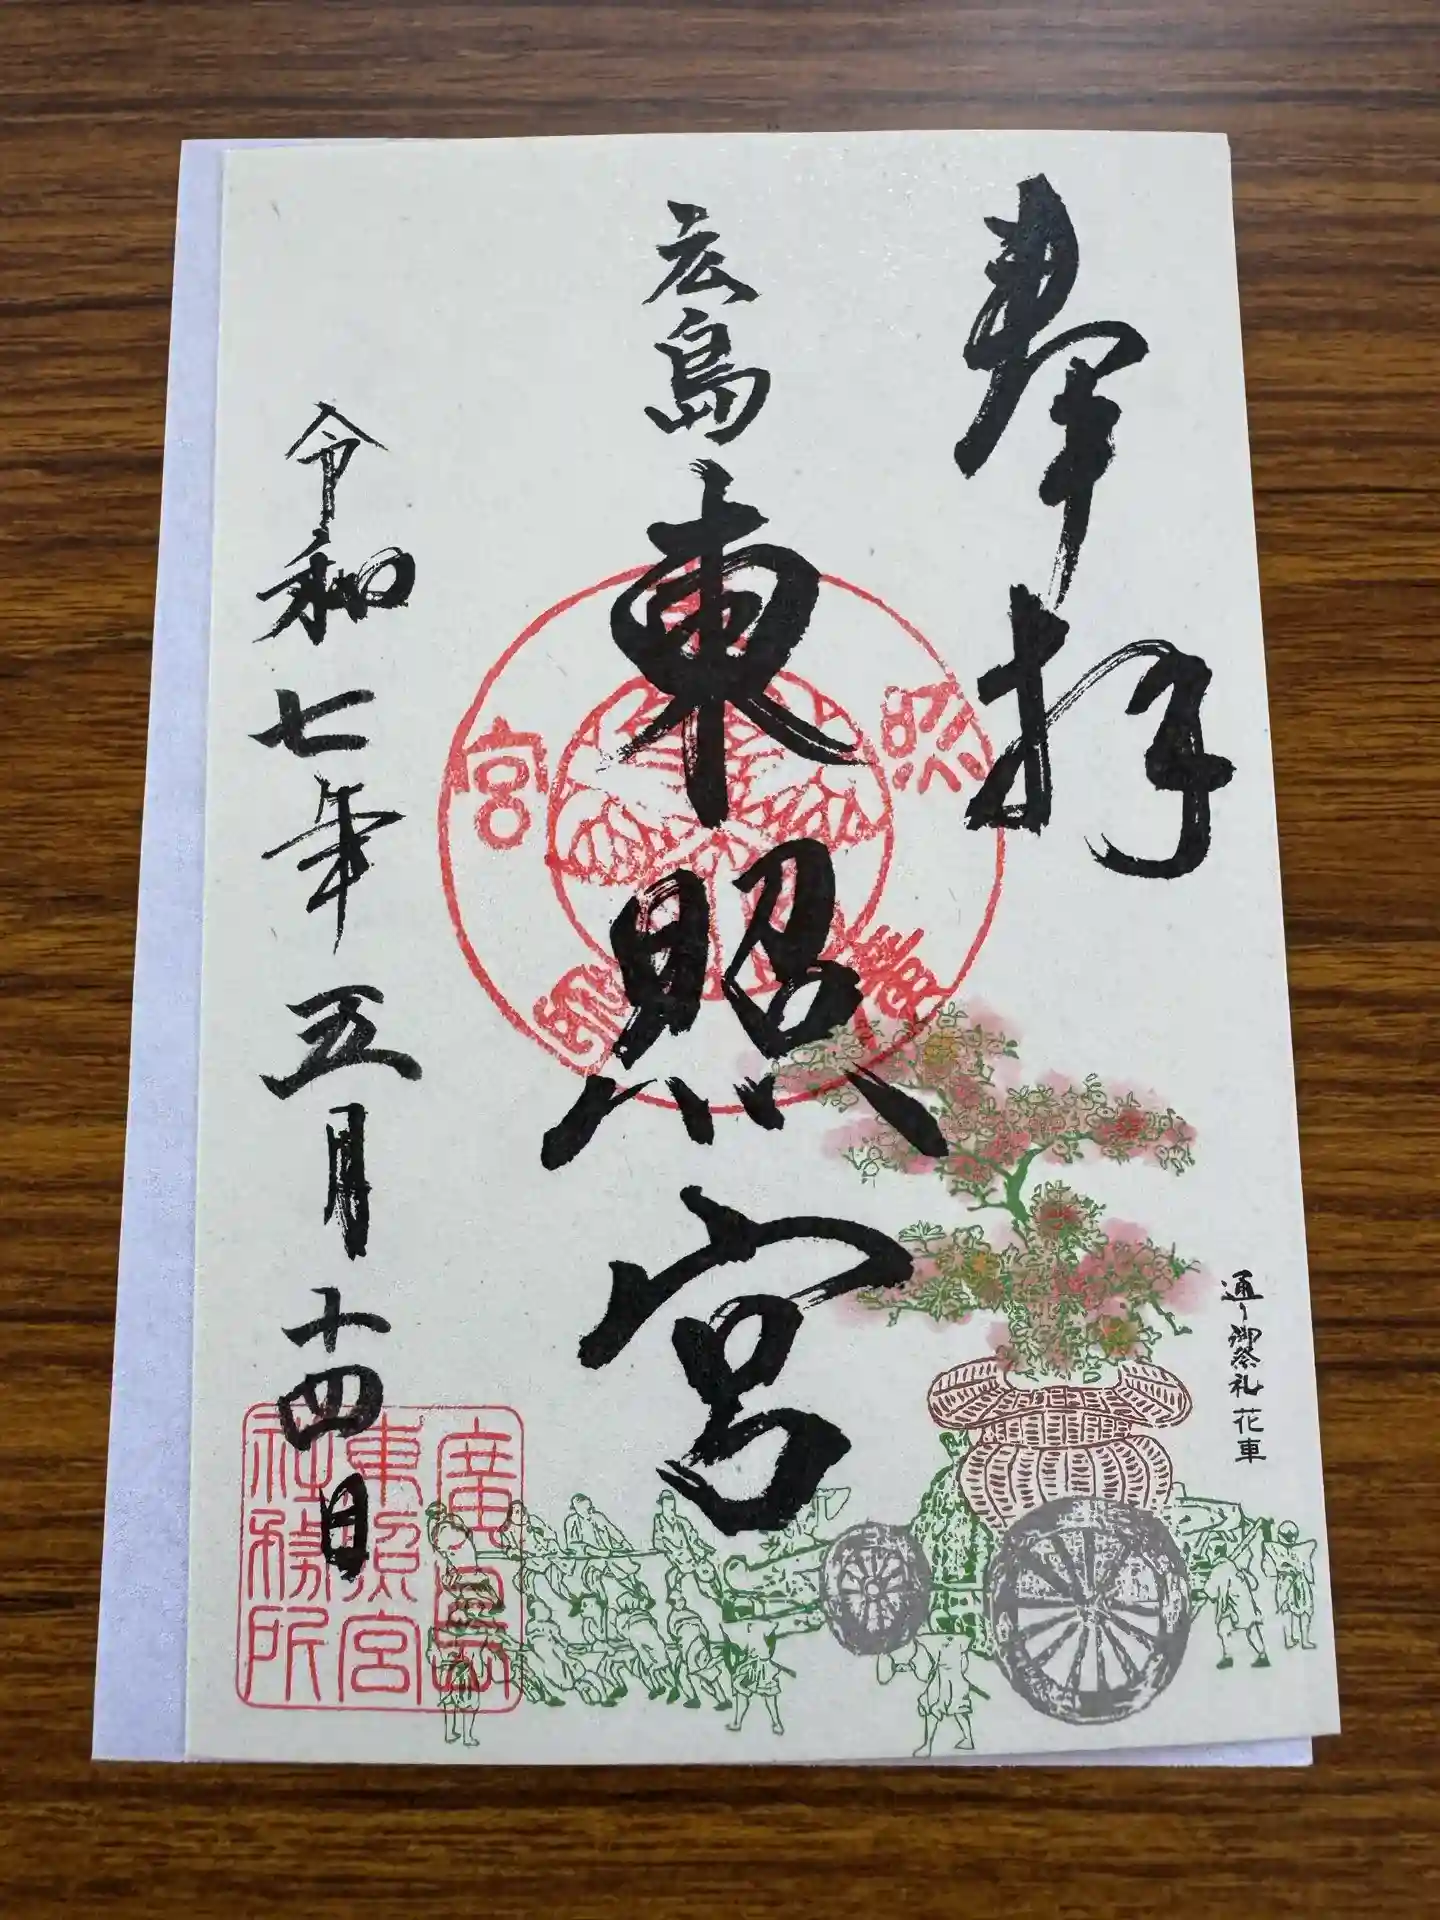 奉拝
広島
東照宮
令和七年五月十四日
通り御祭礼 花車
廣島
東照宮
社務所
東
照
宮